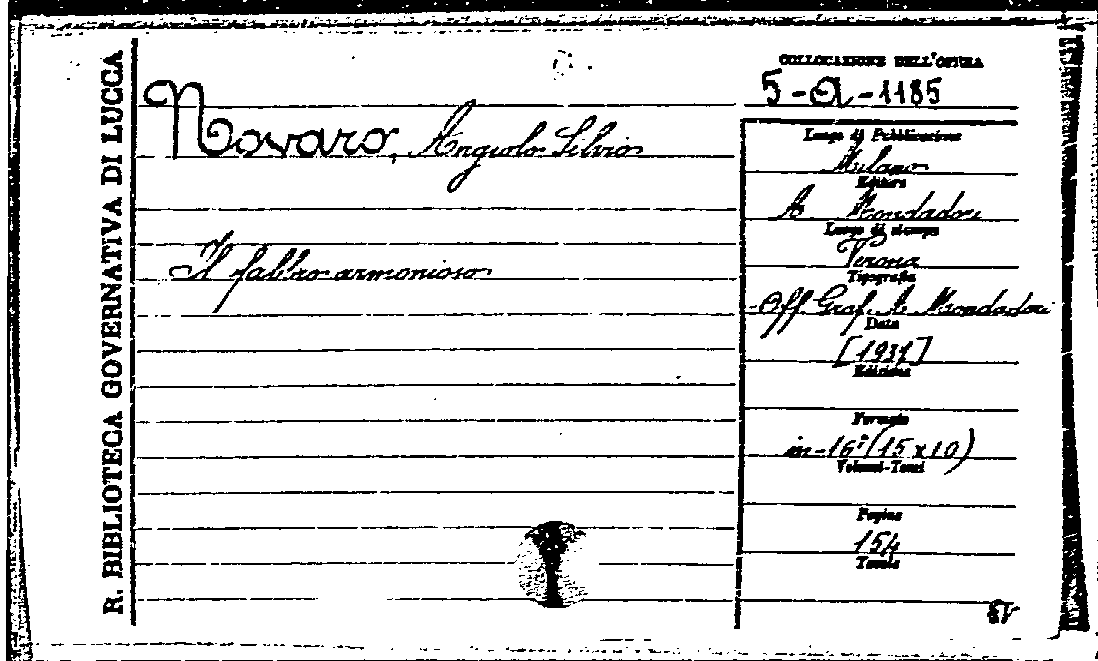 R. BIBLIOTECA GOVERNATIVA DI LUCCA
Novaro, Angiolo Silvio
Il fabbro armonioso
COLLOCAZIONE DELL'OPERA
5-A-1185
Luogo di Pubblicazione
Milano
Editore
A. Mondadori
Luogo di stampa
Verona
Tipografia
Off. Graf. A. Mondadori
Data
[1931]
Edizione
Formato
in-16° (15 x 10)
Volumi-Tomi
Pagine
154
Tavole